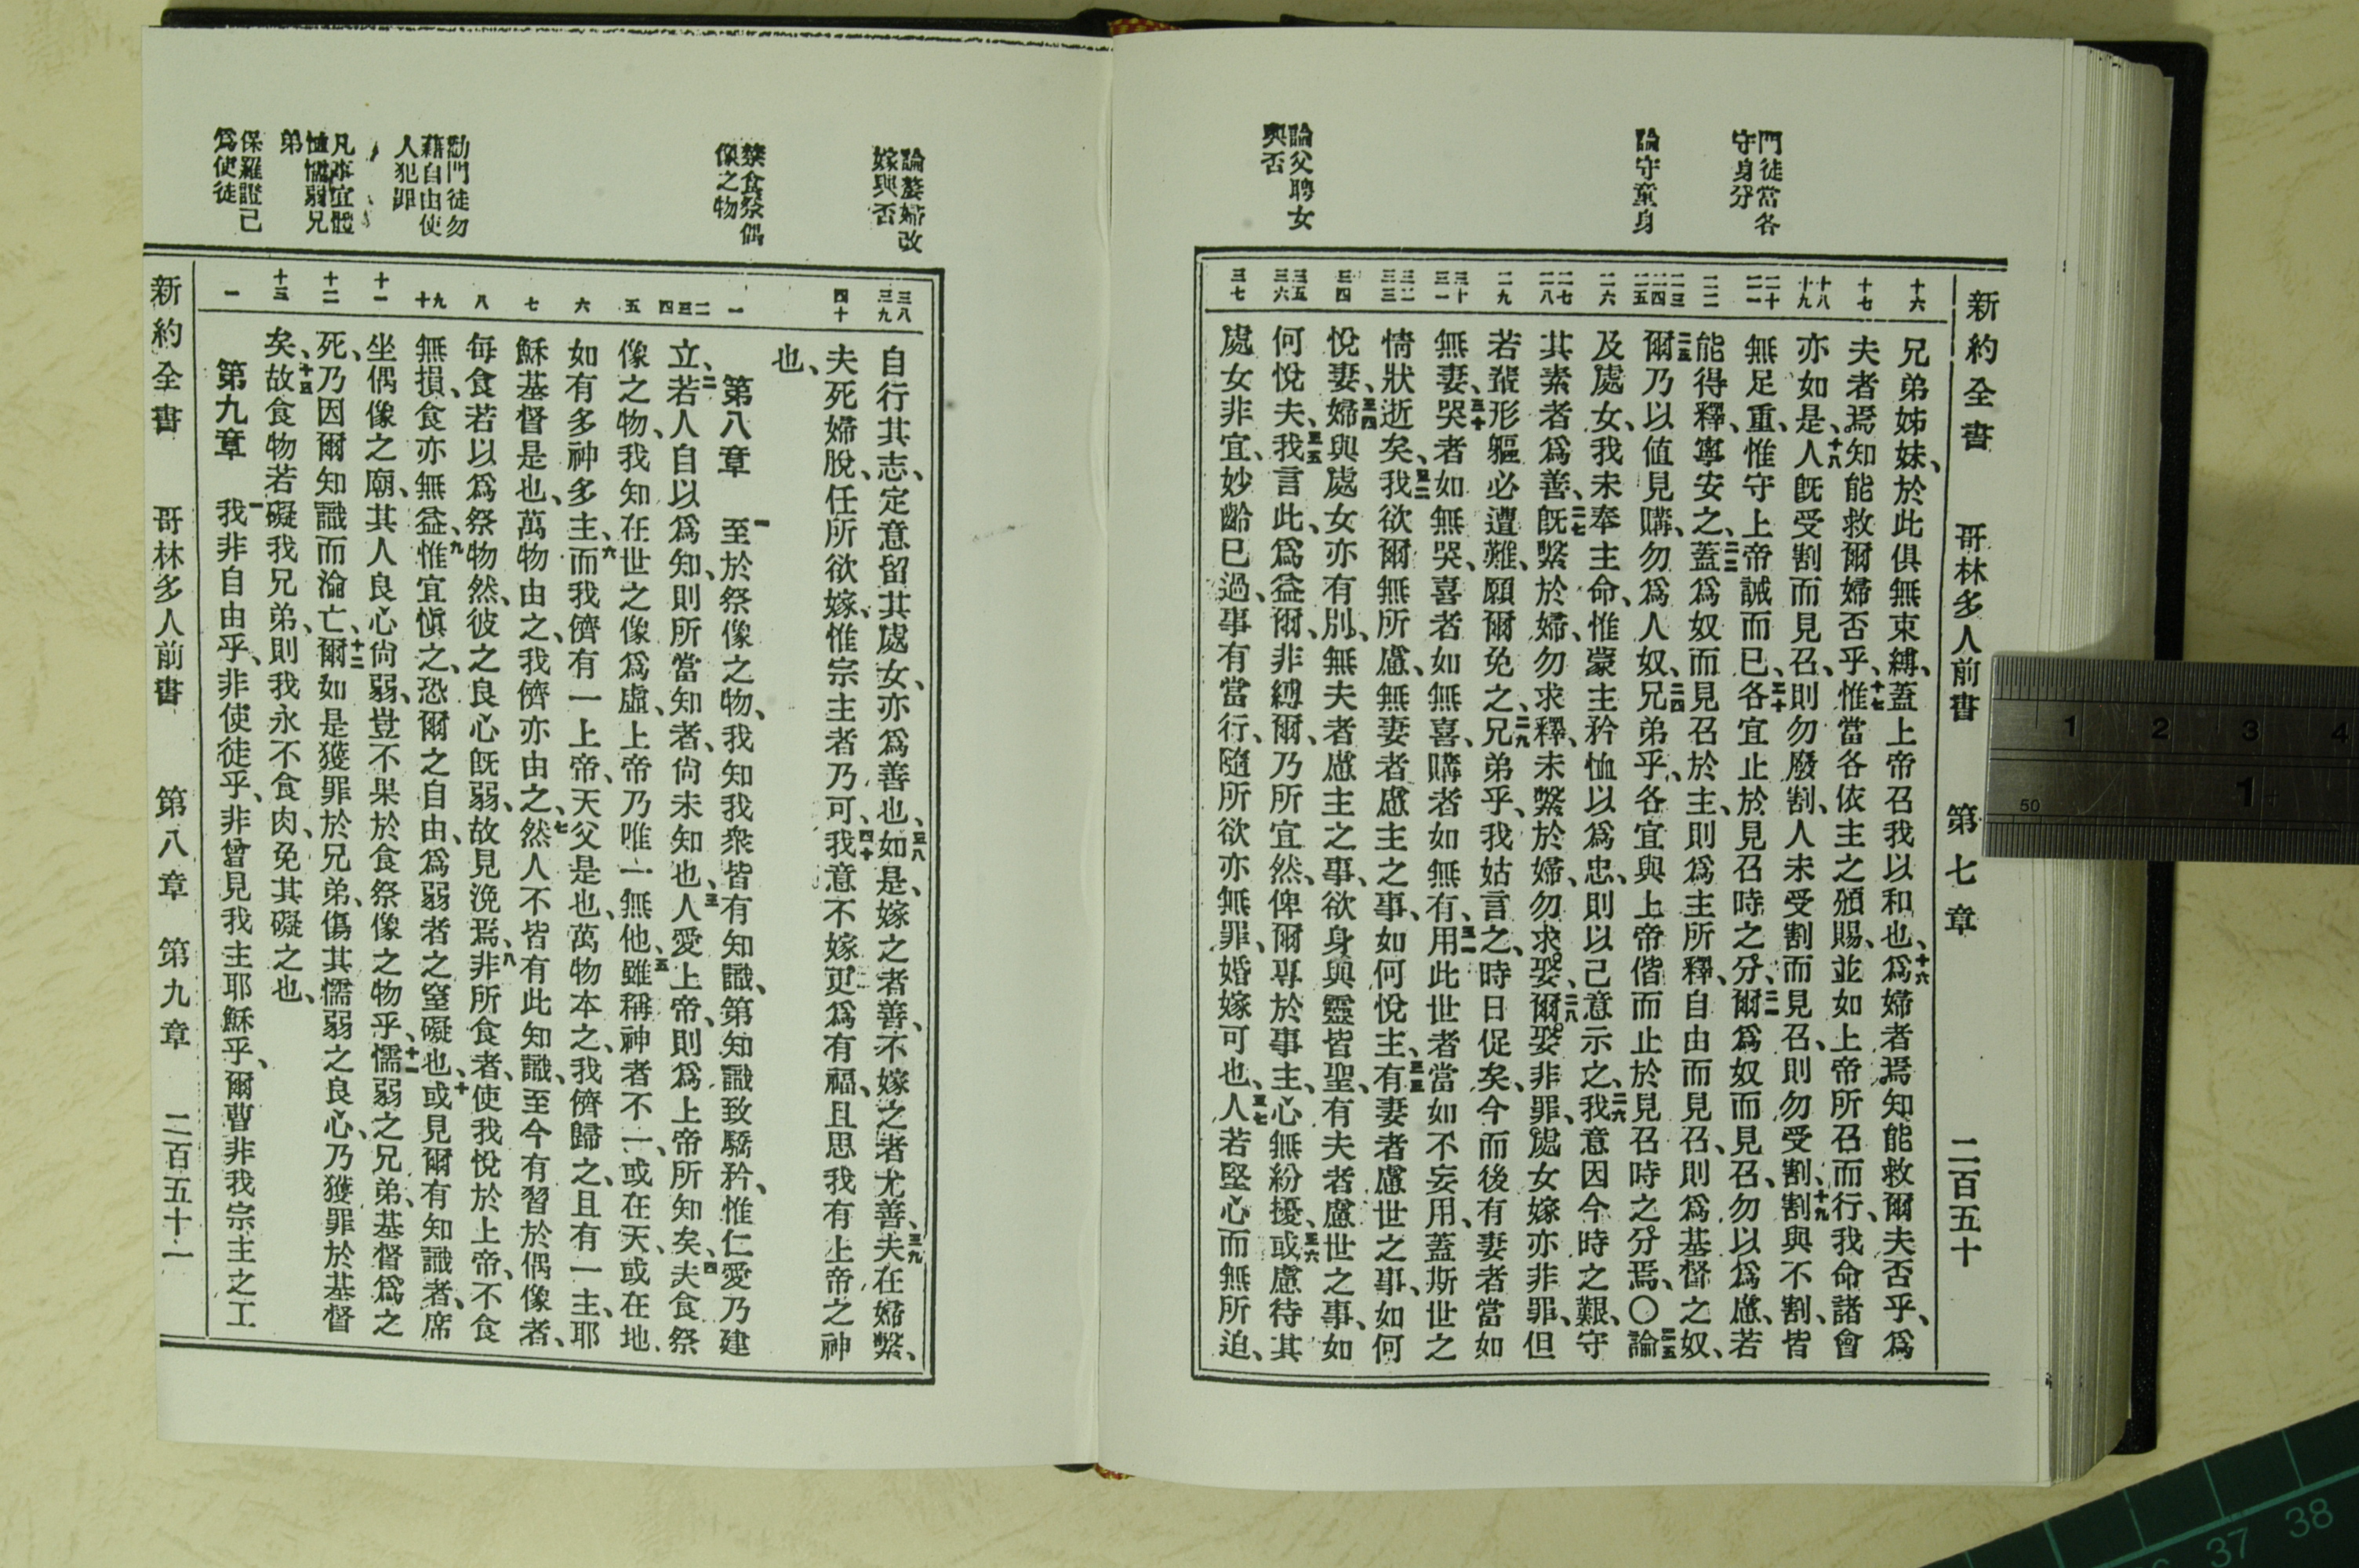 新約全書 哥林多人前書 第七章 二百五十
門徒當各
守身分
論守童身
論父聘女
與否
十六
十七
十八
十九
二十
二一
二二
二三
二四
二五
二六
二七
二八
二九
三十
三一
三二
三三
三四
三五
三六
三七
兄弟姊妹、於此俱無束縛、蓋上帝召我以和也、十六爲婦者焉知能救爾夫否乎、爲
夫者焉知能救爾婦否乎、十七惟當各依主之頒賜、並如上帝所召而行、我命諸會
亦如是、十八人旣受割而見召、則勿廢割、人未受割而見召、則勿受割、十九割與不割、皆
無足重、惟守上帝誡而已、二十各宜止於見召時之分、二一爾爲奴而見召、勿以爲慮、若
能得釋、寧安之、二二蓋爲奴而見召於主、則爲主所釋、自由而見召、則爲基督之奴、
二三爾乃以値見購、勿爲人奴、二四兄弟乎、各宜與上帝偕而止於見召時之分焉、〇二五論
及處女、我未奉主命、惟蒙主矜恤以爲忠、則以己意示之、二六我意因今時之艱、守
其素者爲善、二七旣繫於婦、勿求釋、未繫於婦、勿求娶、二八爾娶非罪、處女嫁亦非罪、但
若輩形軀必遭難、願爾免之、二九兄弟乎、我姑言之、時日促矣、今而後有妻者當如
無妻、三十哭者如無哭、喜者如無喜、購者如無有、三一用此世者當如不妄用、蓋斯世之
情狀逝矣、三二我欲爾無所慮、無妻者慮主之事、如何悅主、三三有妻者慮世之事、如何
悅妻、三四婦與處女亦有別、無夫者慮主之事、欲身與靈皆聖、有夫者慮世之事、如
何悅夫、三五我言此、爲益爾、非縛爾、乃所宜然、俾爾專於事主、心無紛擾、三六或慮待其
處女非宜、妙齡已過、事有當行、隨所欲亦無罪、婚嫁可也、三七人若堅心而無所迫、
論嫠婦改
嫁與否
禁食祭偶
像之物
勸門徒勿
藉自由使
人犯罪
凡事宜體
恤懦弱兄
弟
保羅證己
爲使徒
三八
三九
四十
一
二
三
四
五
六
七
八
九
十
十一
十二
十三
一
自行其志、定意留其處女、亦爲善也、三八如是、嫁之者善、不嫁之者尤善、三九夫在婦繫、
夫死婦脫、任所欲嫁、惟宗主者乃可、四十我意不嫁更爲有福、且思我有上帝之神
也、
第八章 一至於祭像之物、我知我衆皆有知識、第知識致驕矜、惟仁愛乃建
立、二若人自以爲知、則所當知者、尙未知也、三人愛上帝、則爲上帝所知矣、四夫食祭
像之物、我知在世之像爲虛、上帝乃唯一無他、五雖稱神者不一、或在天、或在地、
如有多神多主、六而我儕有一上帝、天父是也、萬物本之、我儕歸之、且有一主、耶
穌基督是也、萬物由之、我儕亦由之、七然人不皆有此知識、至今有習於偶像者、
每食若以爲祭物然、彼之良心旣弱、故見浼焉、八非所食者、使我悅於上帝、不食
無損、食亦無益、九惟宜愼之、恐爾之自由、爲弱者之窒礙也、十或見爾有知識者、席
坐偶像之廟、其人良心尙弱、豈不果於食祭像之物乎、十一懦弱之兄弟、基督爲之
死、乃因爾知識而淪亡、十二爾如是獲罪於兄弟、傷其懦弱之良心、乃獲罪於基督
矣、十三故食物若礙我兄弟、則我永不食肉、免其礙之也、
第九章 一我非自由乎、非使徒乎、非曾見我主耶穌乎、爾曹非我宗主之工
新約全書 哥林多人前書 第八章 第九章 二百五十一
1 2 3 4
1
50
37 38